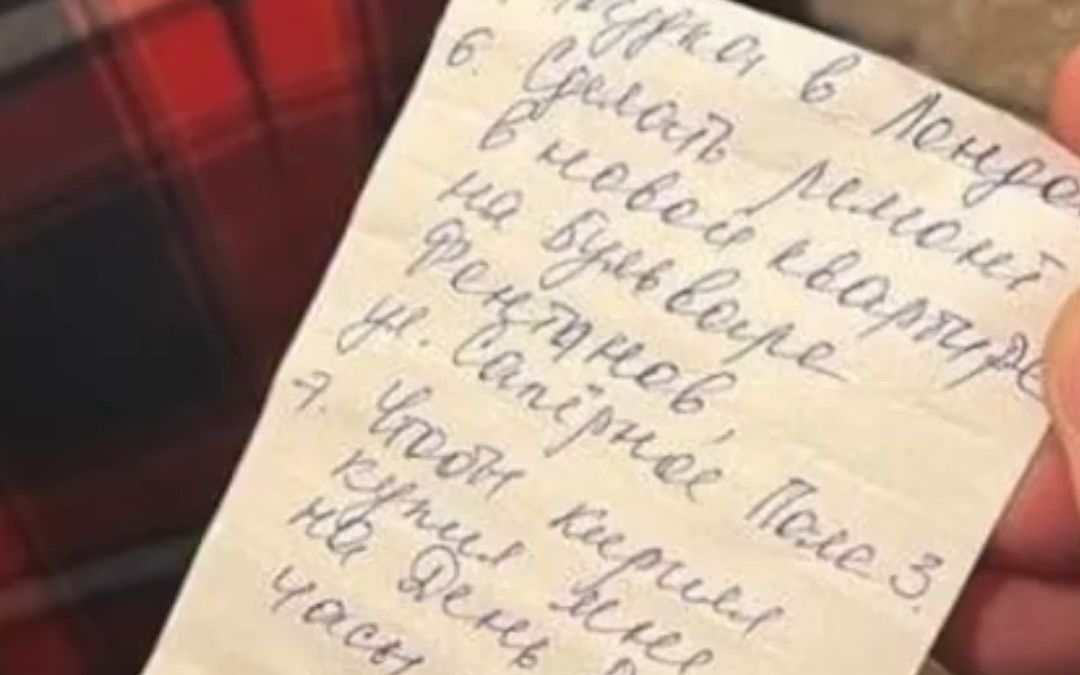 в Лондо
6. Сделать ремонт
в новой квартире
на бульваре
Фонтанов,
ул. Сапёрное Поле 3.
7. Чтобы Кирилл
купил мне
на День
часы